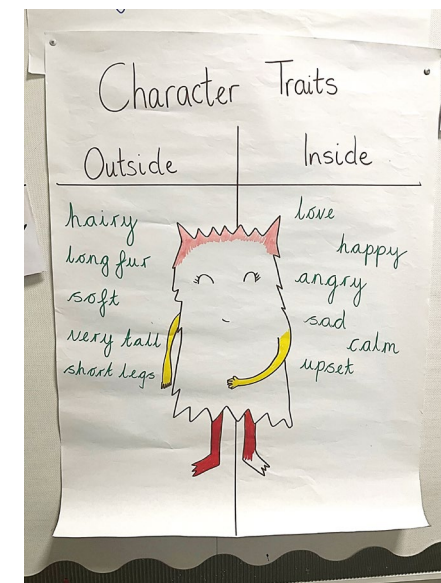 Character Traits
Outside
Inside
hairy
long fur
soft
very tall
short legs
love
happy
angry
sad
calm
upset